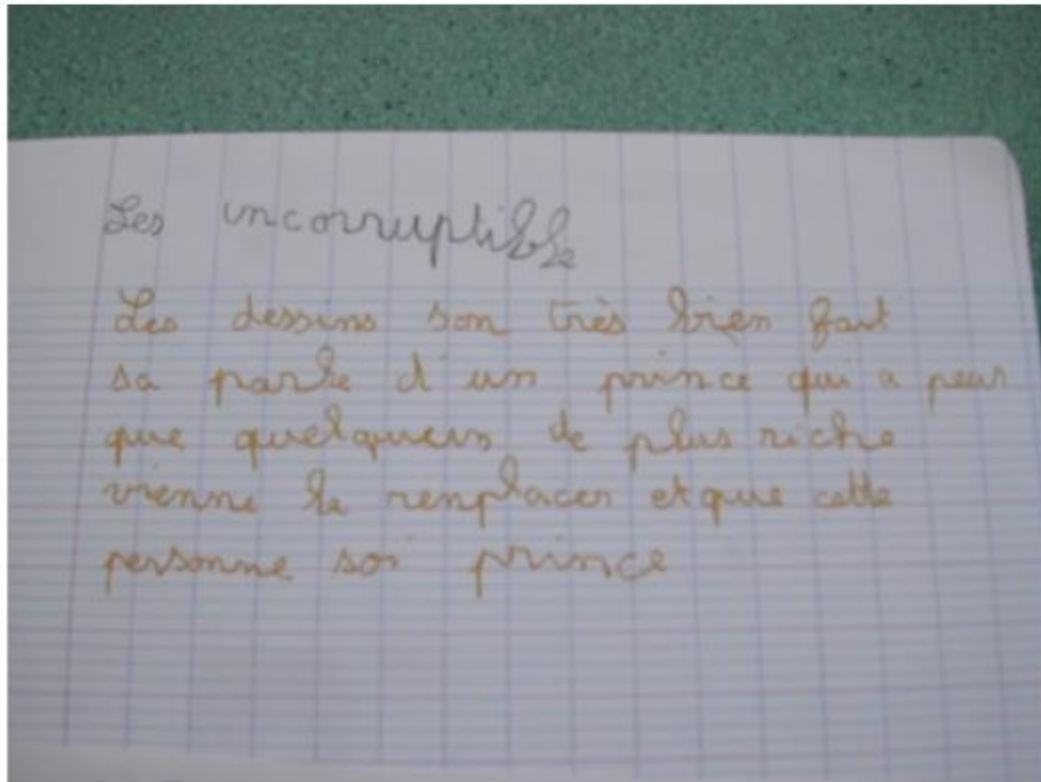 Les incorruptible
Les dessins son très bien fait
sa parle d'un prince qui a peur
que quelqueun de plus riche
vienne le renplacer et que cette
personne soi prince